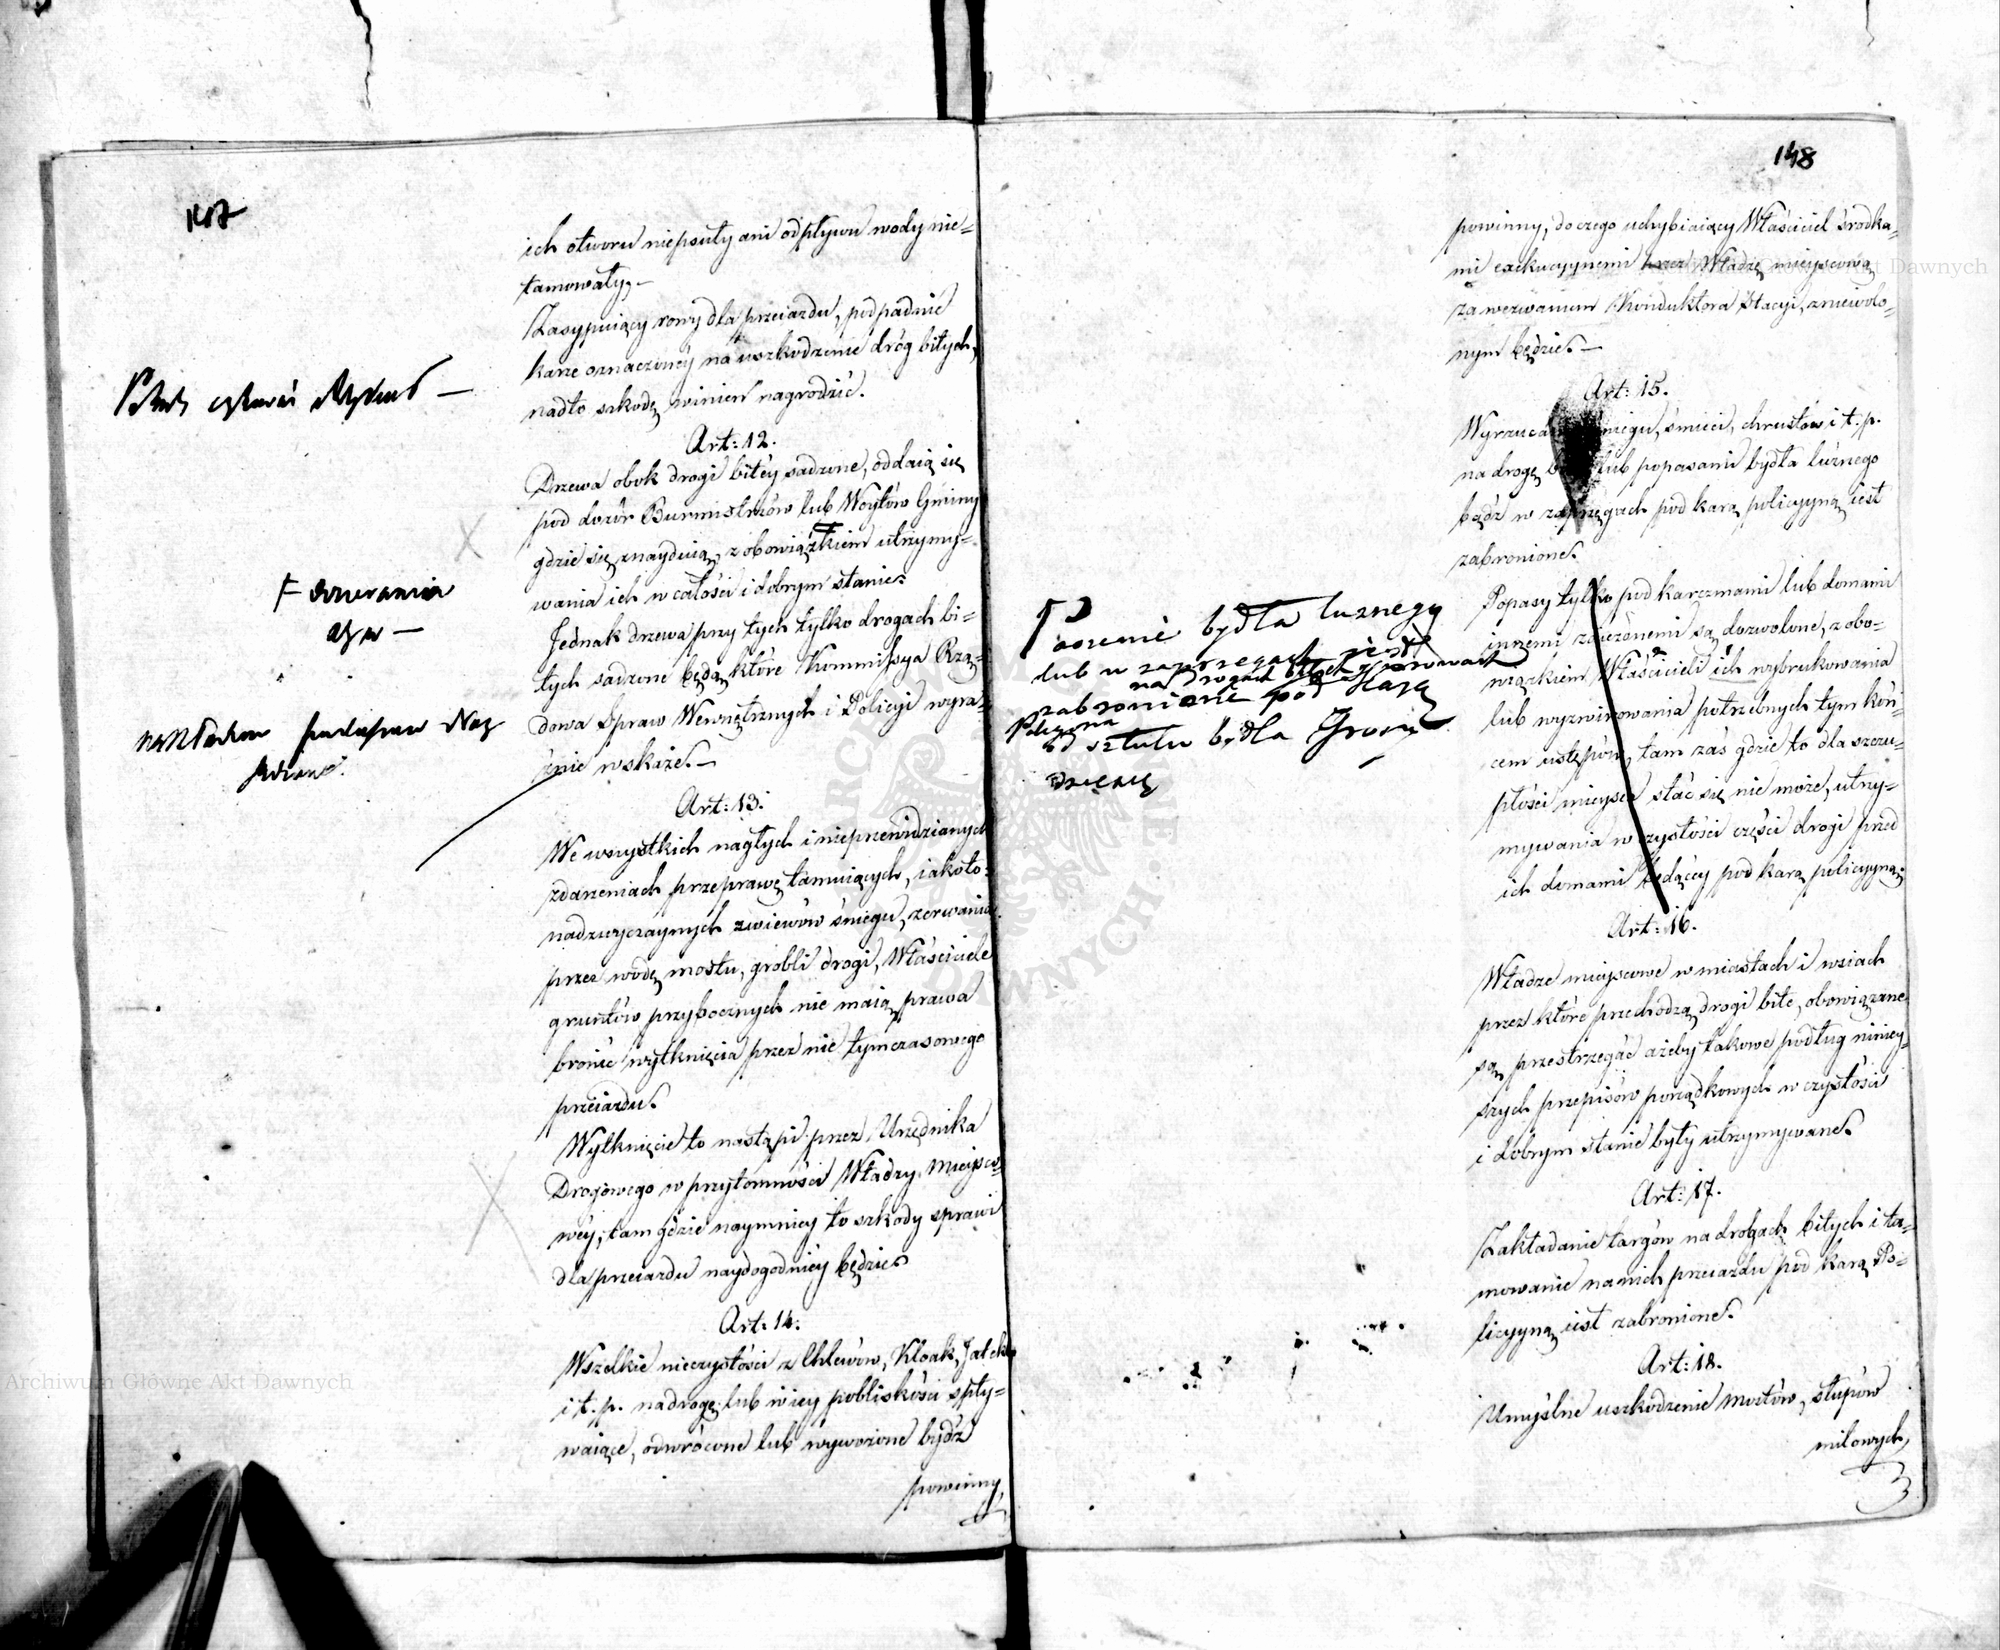 147
ich otworu niepsuły ani odpływu wody nie=
tamowały,—
Zasypuiący rowy dla przeiazdu, podpadnie
karze oznaczoney na uszkodzenie dróg bitych,
nadto szkodę winien nagrodzić.
Art: 12.
Drzewa obok drogi bitéy sadzone, oddaią się
pod dozór Burmistrzów lub Woytów Gminy
gdzie się znayduią, z obowiązkiem utrzymy=
wania ich w całości i dobrym stanie.
Jednak drzewa przy tych tylko drogach bi=
tych sadzone będą, które Kommissya Rzą=
dowa Spraw Wewnętrznych i Policyi wyra=
źnie wskaże.—
Art: 13.
We wszystkich nagłych i nieprzewidzianych
zdarzeniach przeprawę tamuiących, iakoto:
nadzwyczaynych zwiewów śniegu, zerwania
przez wodę mostu, grobli drogi, Właściciele
gruntów przybocznych nie maią prawa
bronić wytknięcia przez nie tymczasowego
przeiazdu.
Wytknięcie to nastąpi przez Urzędnika
Drogowego w przytomności Władzy Mieysco=
wéy, tam gdzie naymniey to szkody sprawi
dla przeiazdu naydogodniéy będzie.
Art: 14.
Wszelkie nieczystości z Chlewów, Kloak, Jatek
i t. p. na drogę lub w iey pobliskości spły=
waiące, odwrócone lub wywożone bydź
powinny,
148
powinny, do czego uchybiaiący Właściciel środka=
mi exekucyynemi przez Władzę mieyscową
za wezwaniem Konduktora Stacyi, zniewolo=
nym będzie.—
Art: 15.
śmieci, chrustów i t. p.
na drogę lub popasami bydła luźnego
bądź w zaprzęgach pod karą policyyną iest
zabronione.
Popasy tylko pod karczmami lub domami
innemi zaiezdnemi są dozwolone, z obo=
wiązkiem Właścicieli ich wybrukowania
lub wyzwirowania potrzebnych tym koń=
cem ustępów, tam zaś gdzie to dla szczu=
płości mieysca stać się nie może, utrzy=
mywania w czystości części drogi przed
ich domami będącey pod karą policyyną.
Pasenie bydła luznego
lub w zaprzęgach jest
na drogach bitych i rowach
zabronione pod Karą
Policyjną
od sztuki bydła Groszy
Art: 16.
Władze mieyscowe w miastach i wsiach
przez które przechodzą drogi bite, obowiązane
są, przestrzegać ażeby takowe podług niniey=
szych przepisów porządkowych w czystości
i dobrym stanie były utrzymywane.
Art: 17.
Zakładanie targów na drogach bitych i ta=
mowanie na nich przeiazdu pod karą Po=
licyyną iest zabronione.
Art: 18.
Umyślne uszkodzenie mostów, słupów
milowych,